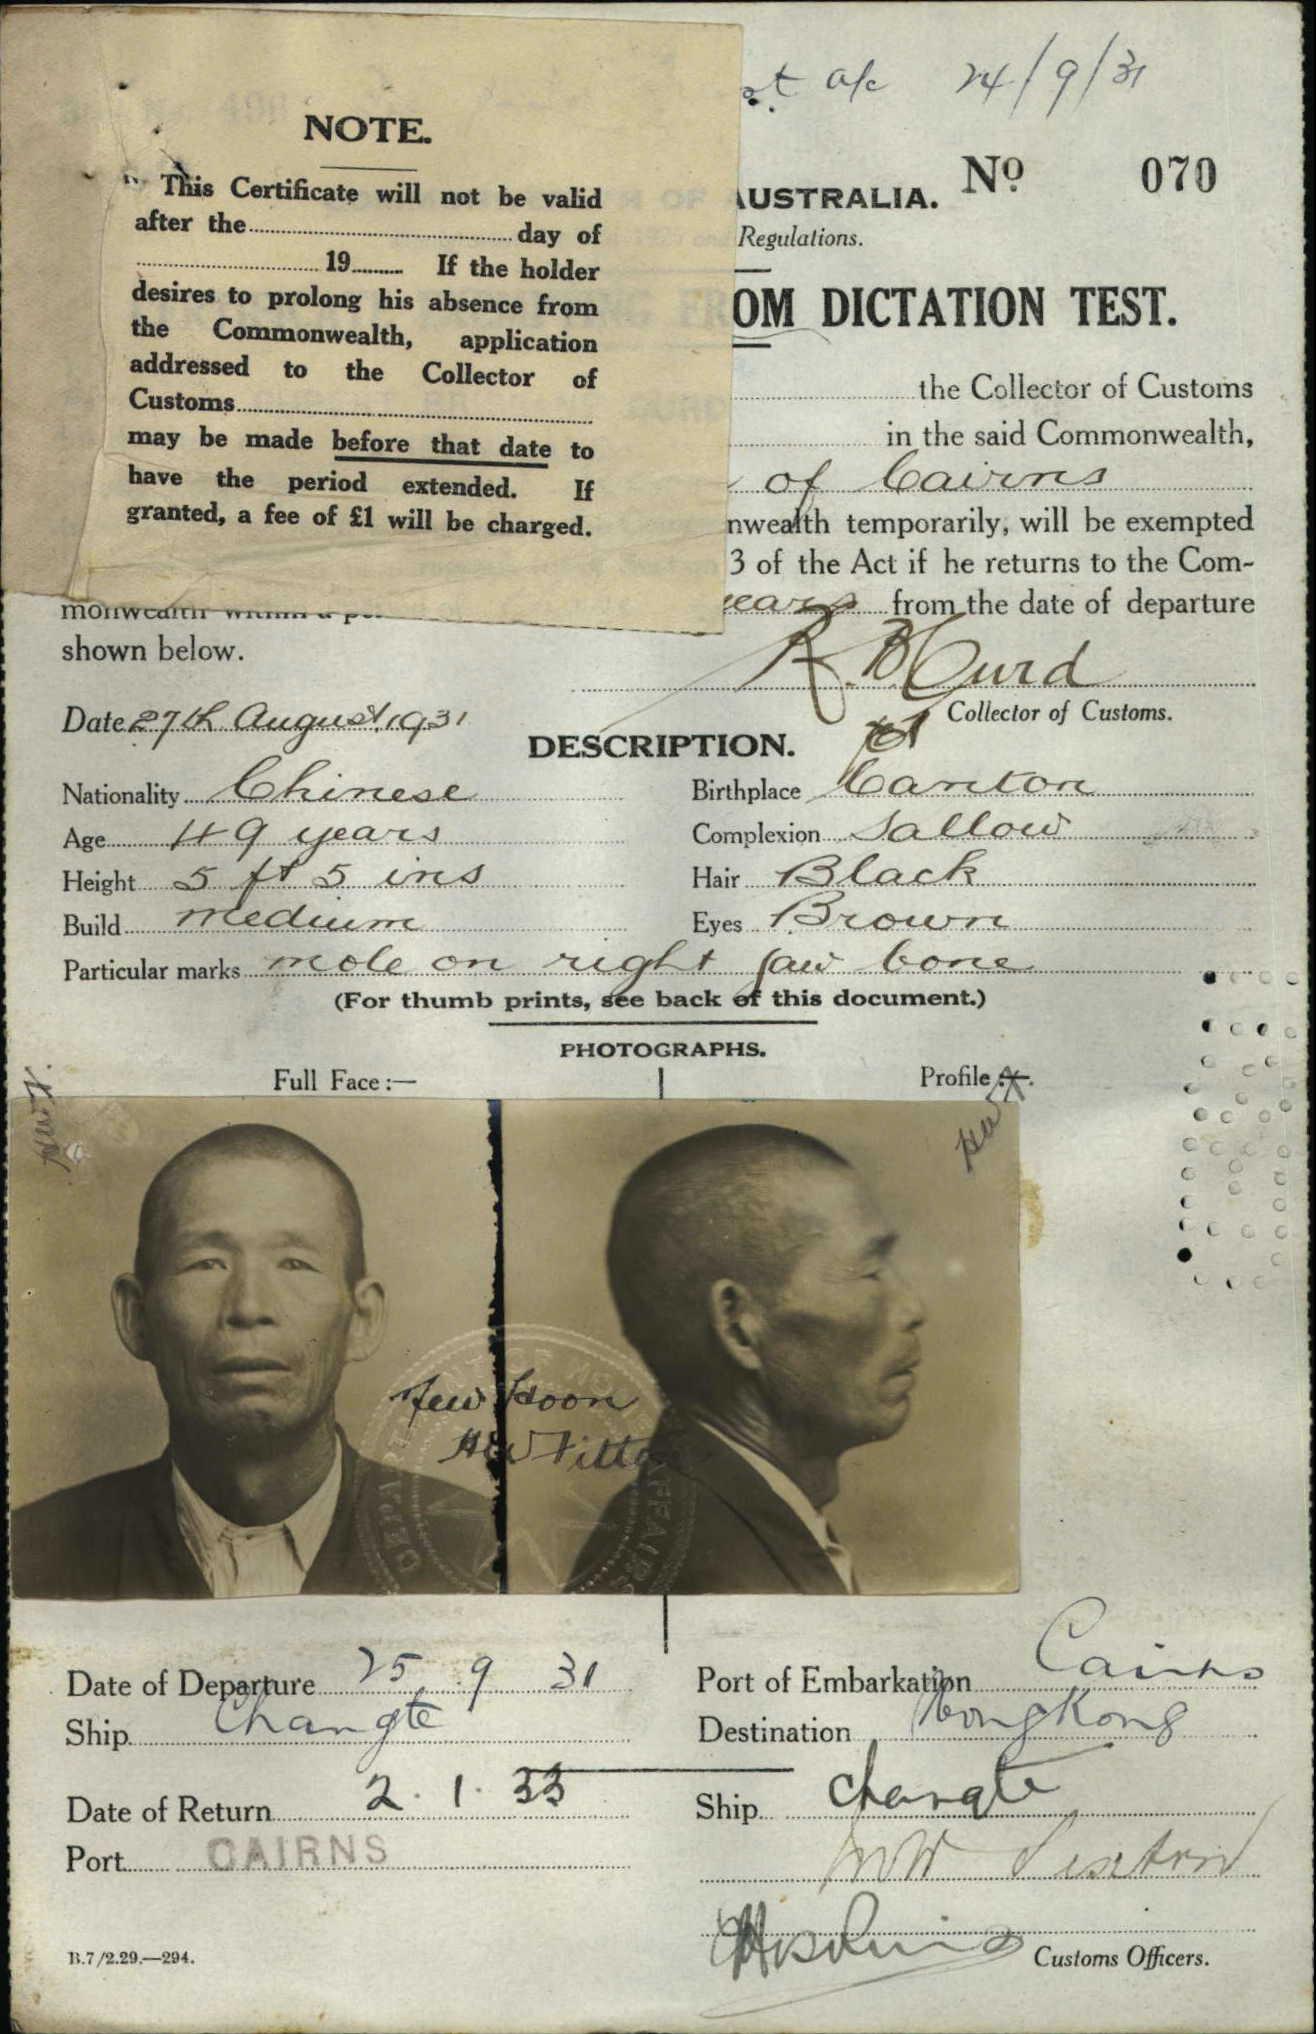 a/c 24/9/31
NOTE.
"This Certificate will not be valid
after the.............day of
.............19......... If the holder
desires to prolong his absence from
the Commonwealth, application
addressed to the Collector of
Customs.............
may be made before that date to
have the period extended. If
granted, a fee of £1 will be charged.
No 070
OF AUSTRALIA.
Regulations.
FROM DICTATION TEST.
the Collector of Customs
in the said Commonwealth,
of Cairns
nwealth temporarily, will be exempted
3 of the Act if he returns to the Com-
monwealth within a years from the date of departure
shown below.
R. B. Curd
Collector of Customs.
Date 27th August, 1931
DESCRIPTION.
Nationality Chinese Birthplace Canton
Age 49 years Complexion Sallow
Height 5 ft 5 ins Hair Black
Build medium Eyes Brown
Particular marks mole on right jaw bone
(For thumb prints, see back of this document.)
PHOTOGRAPHS.
Full Face :— Profile :—
Hoon
Date of Departure 25.9.31 Port of Embarkation Cairns
Ship Changte Destination Hongkong
Date of Return 2.1.33 Ship Changte
Port CAIRNS
Customs Officers.
B.7/2.29.—294.